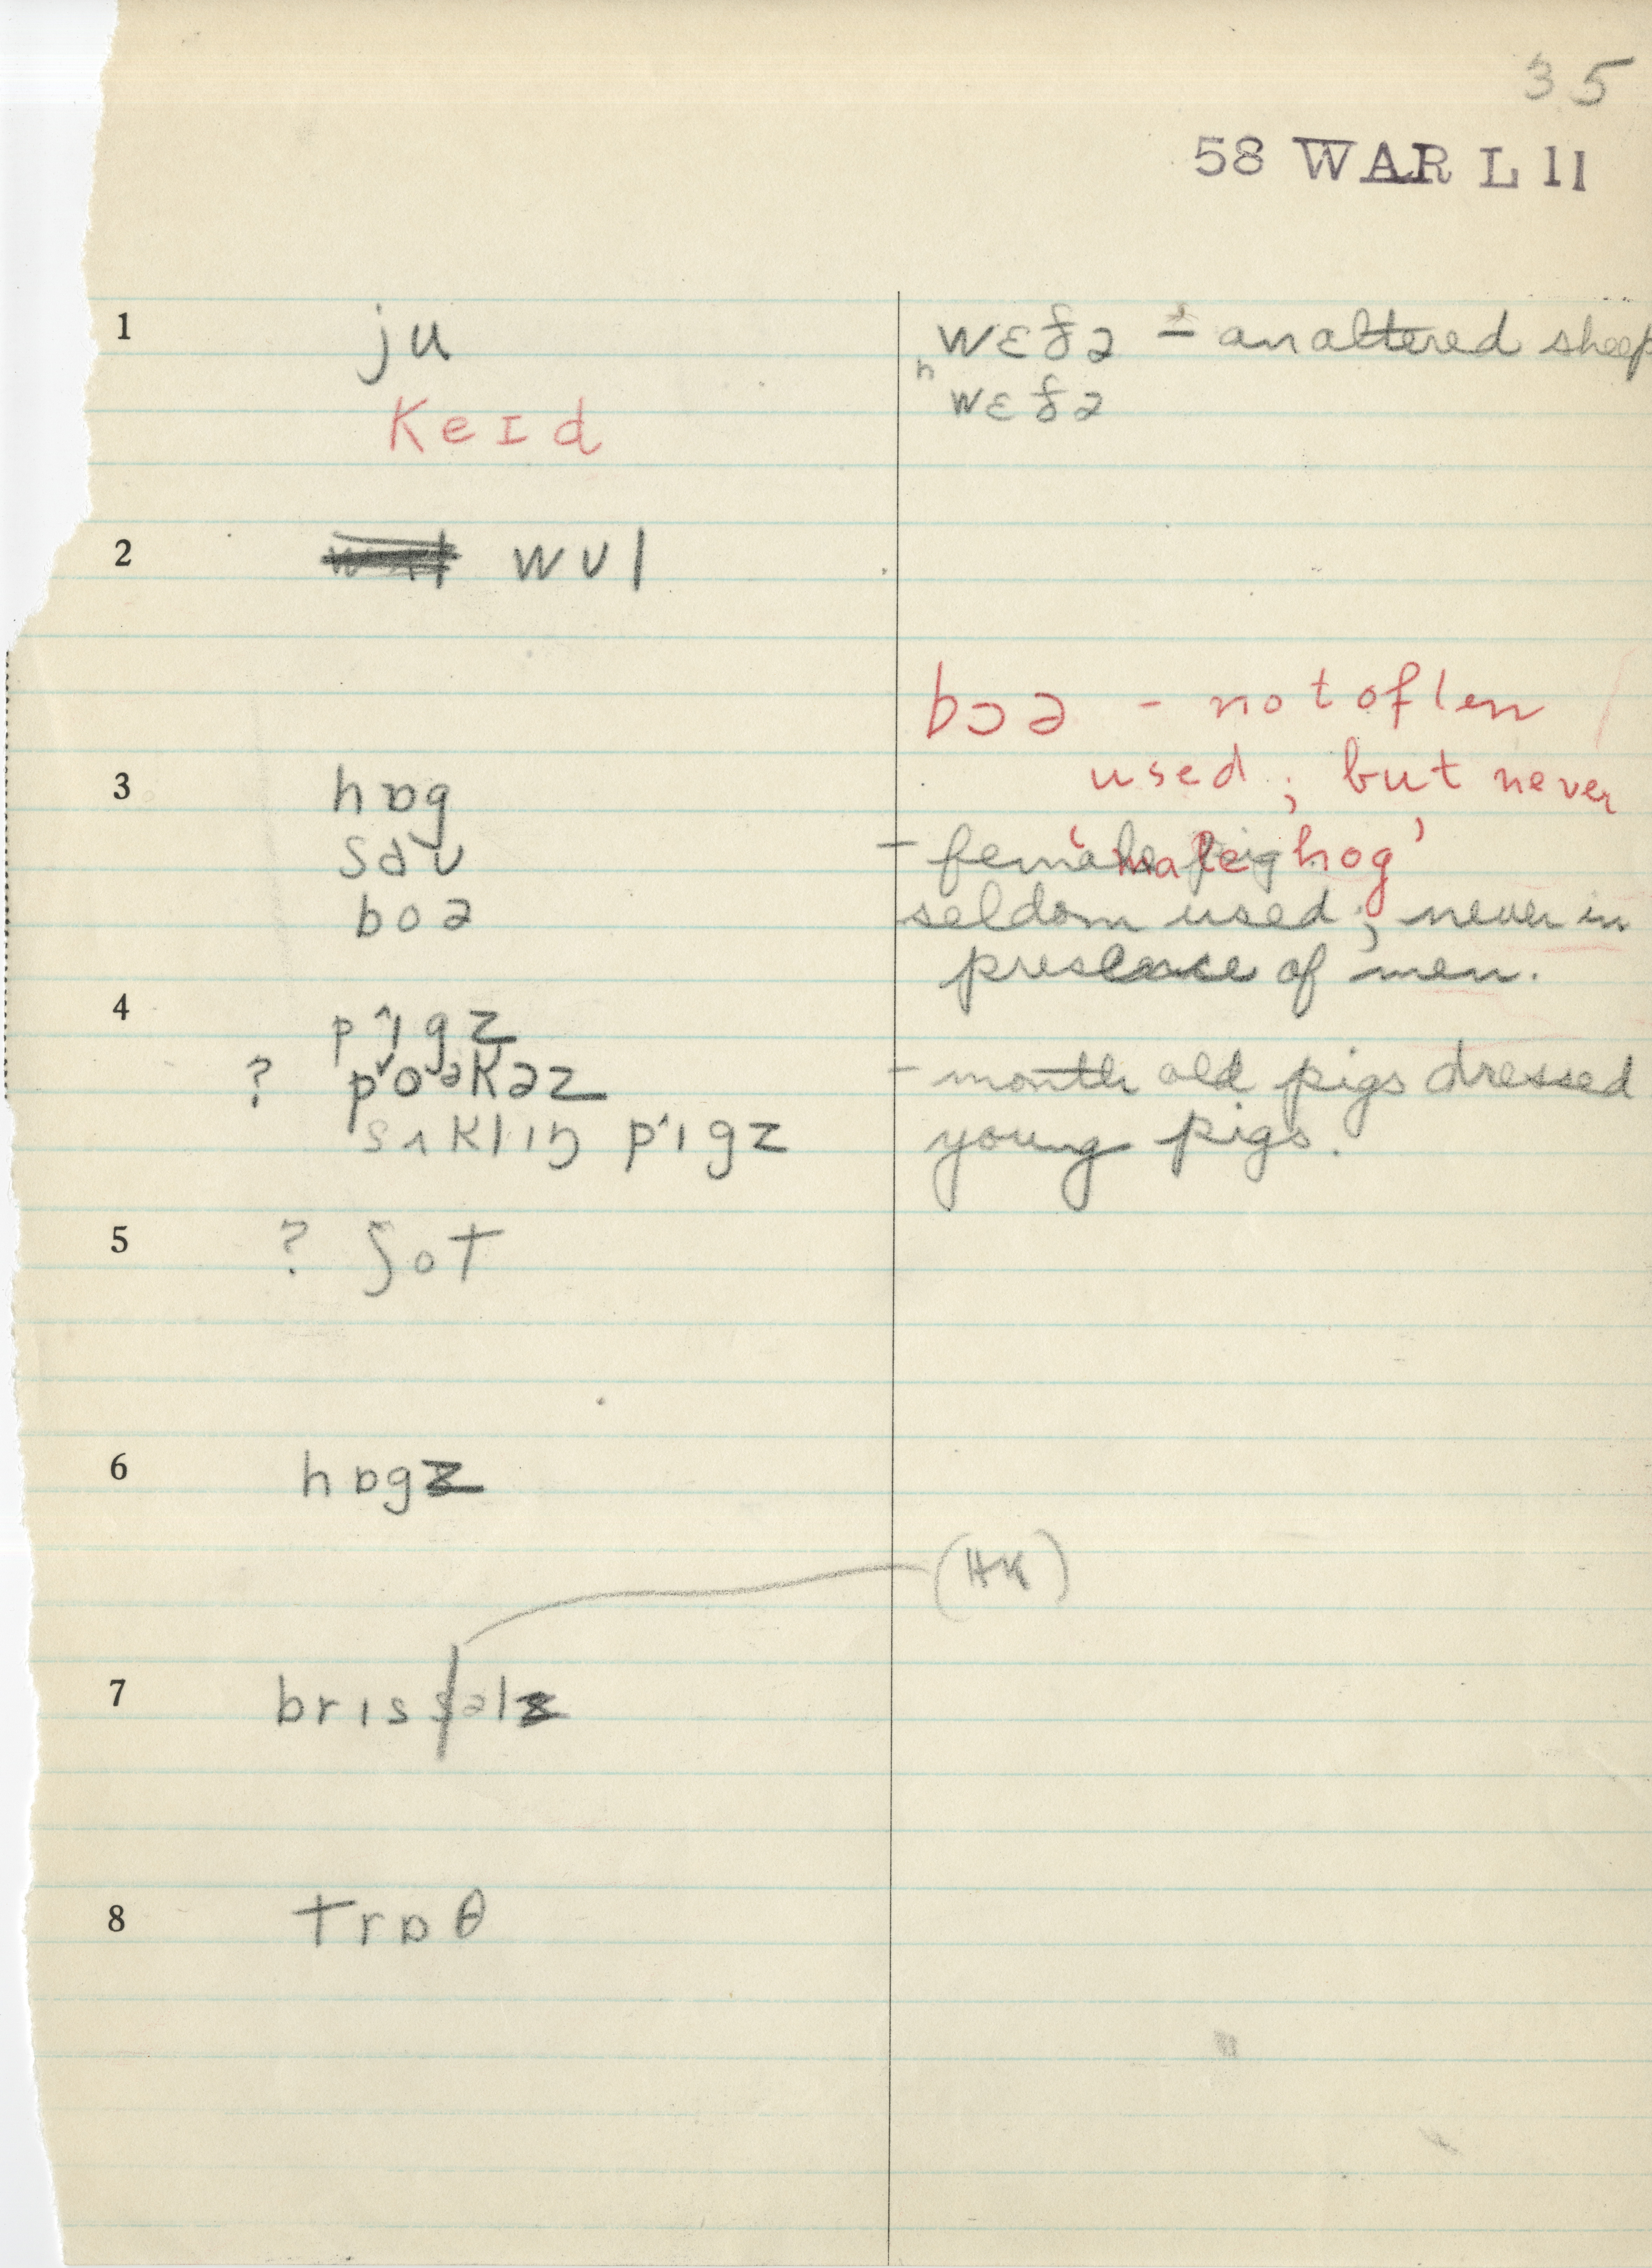 35
58 WAR L 11
1 ju wɛðə – an altered sheep
ʰwɛðə
keɪd
2 wʊl
bɔə – not often
used; but never
'male hog'
3 hɒg
saʊ – female pig
boə seldom used; never in
presence of men.
4 pɪgz
? poəkəz – month old pigs dressed
sʌklɪŋ pɪgz young pigs.
5 ? ʃot
6 hɒgz
(HK)
7 brɪsəlz
8 trɒθ